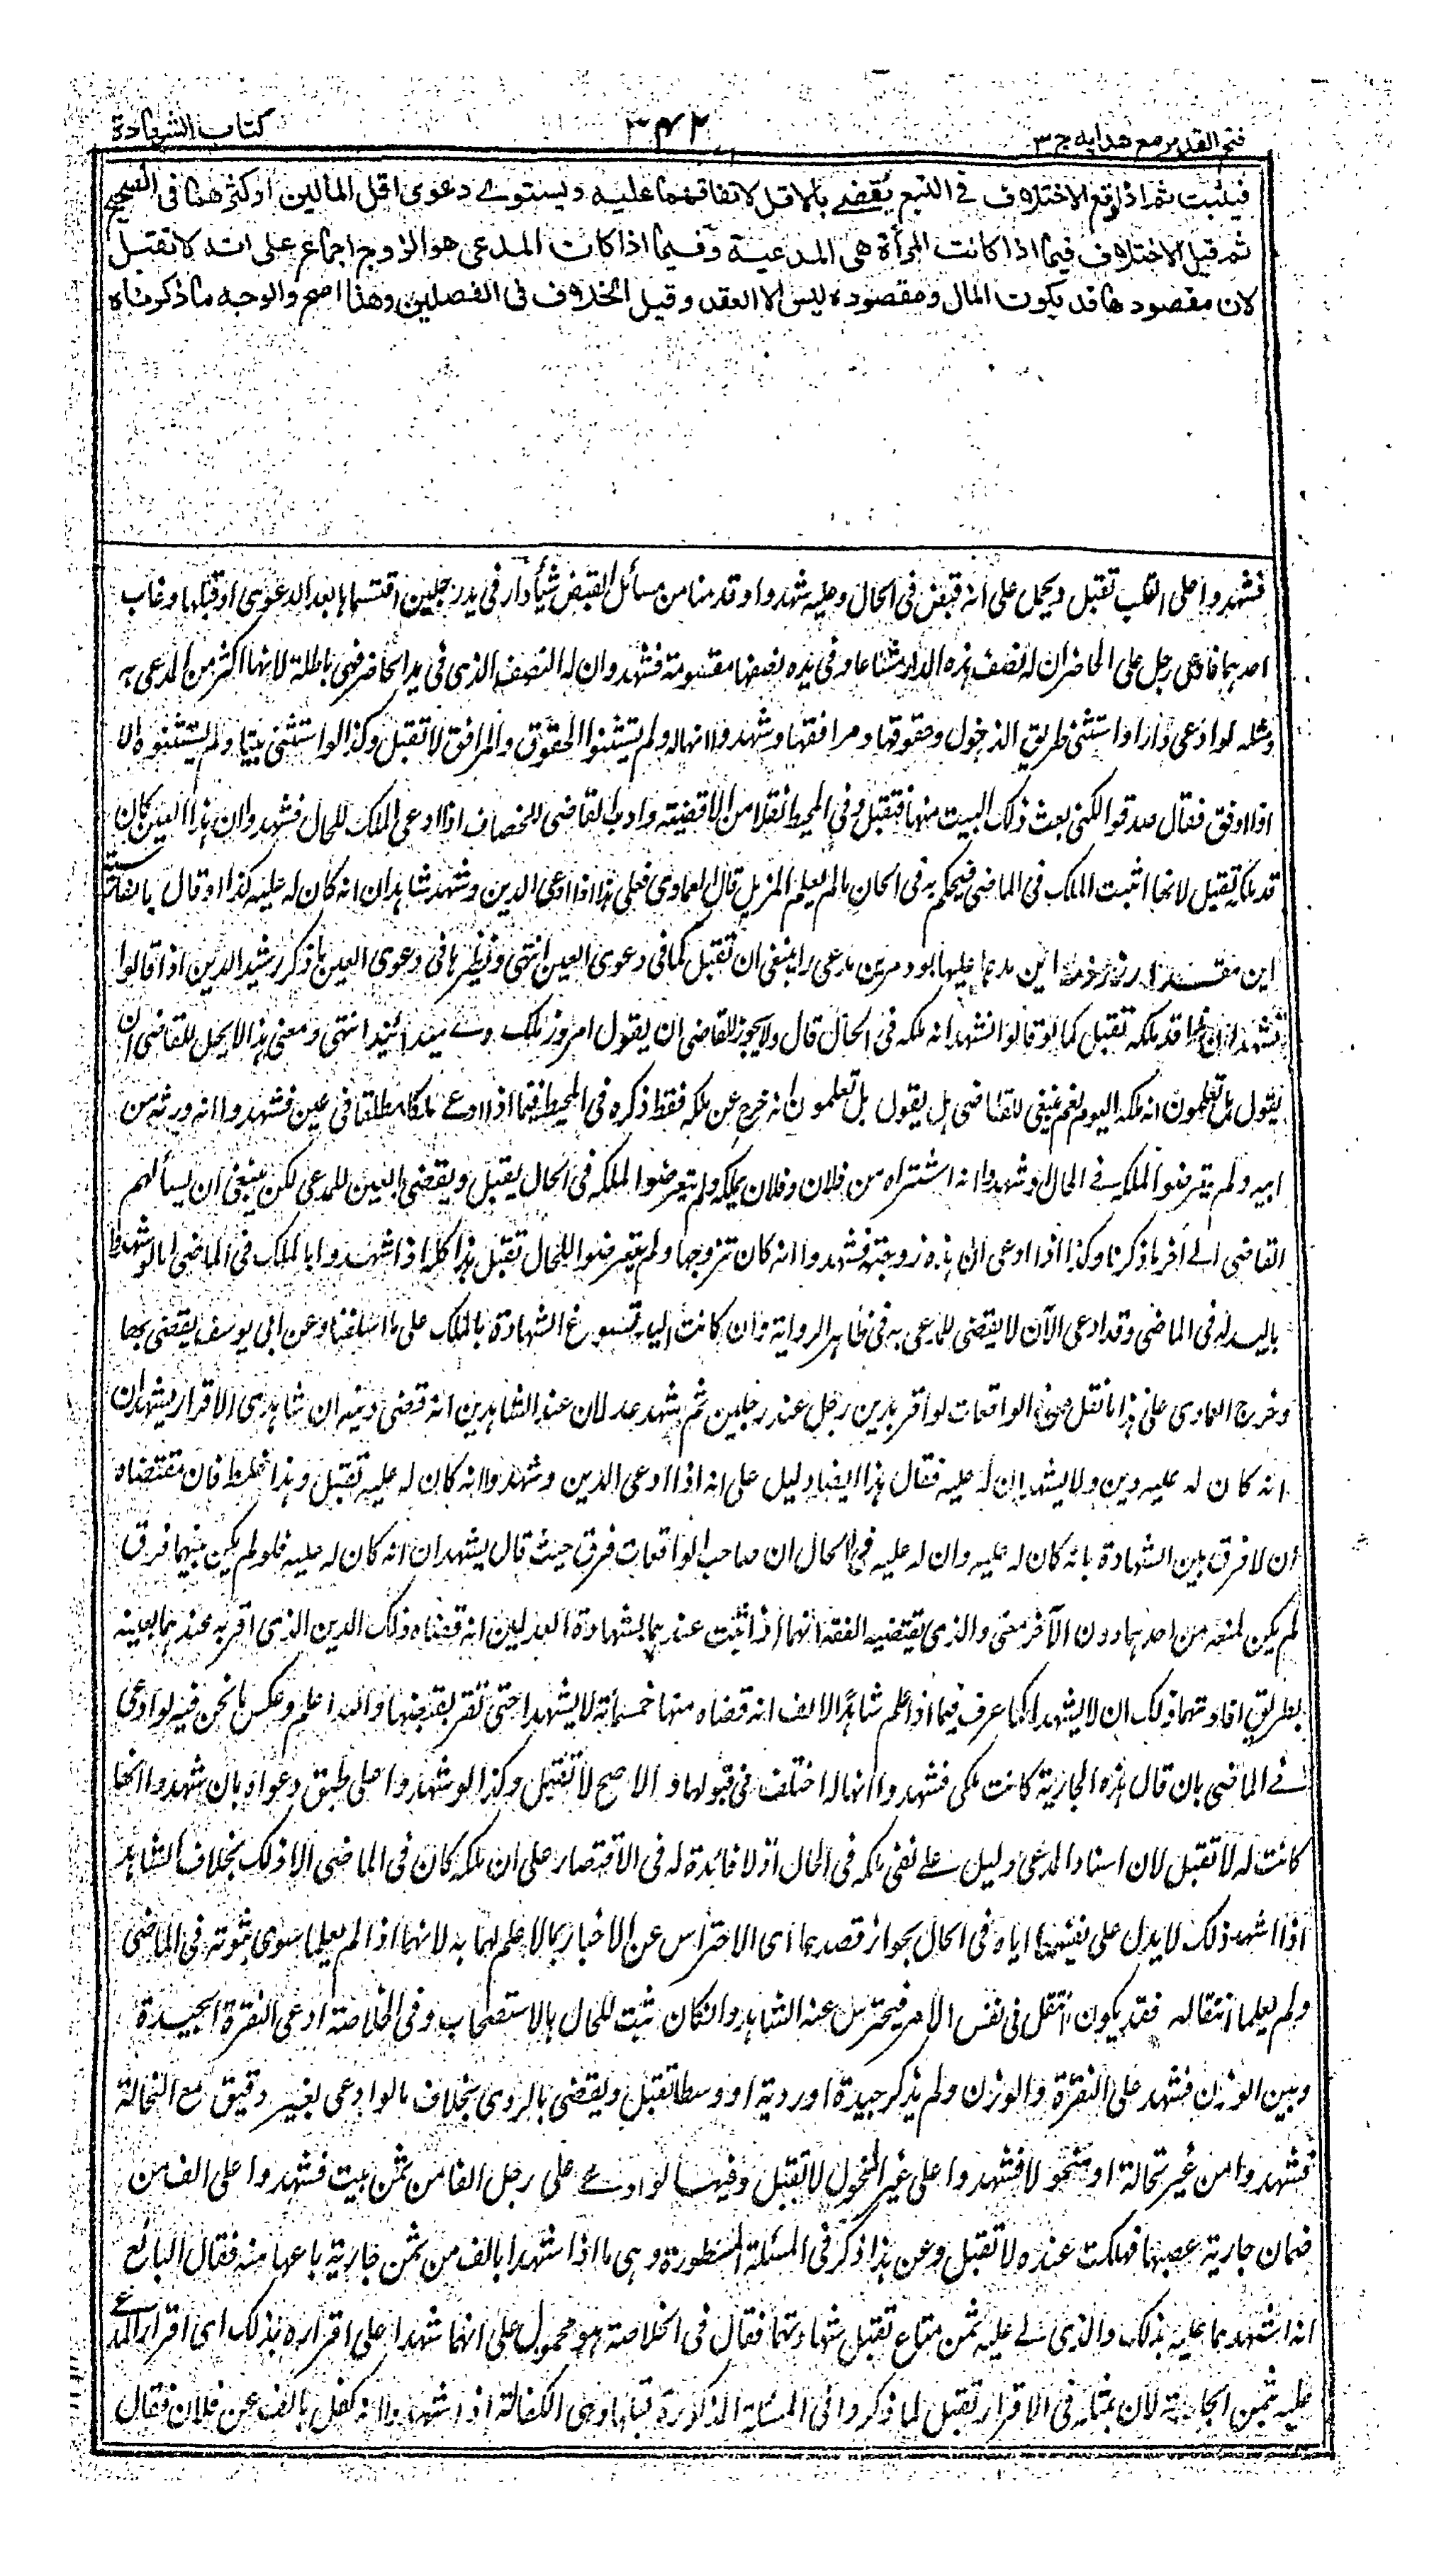 فتح القدير مع هدايه ج ٣ ٣٤٢ كتاب الشهادة
فيثبت ثم اذا وقع الاختلاف في التبع يقضے بالاقل لاتفاقهما عليه ويستوے دعوى اقل المالين او اكثرهما فى الصحيح
ثم قيل الاختلاف فيما اذا كانت المرأة هى المدعية وفيما اذا كان المدعى هو الزوج اجماع على انه لا تقبل
لان مقصودها قد يكون المال ومقصوده ليس الا العقد وقيل الخلاف فى الفصلين وهذا اصح والوجه ما ذكرناه
فشهدوا على القلب تقبل ويحمل على انه قبض فى الحال وعليه شهدوا وقدمنا من مسائل القبض شيأ دار فى يد رجلين اقتسماها بعد الدعوى او قبلها وغاب
احدهما فادعى رجل على الحاضران له نصف هذه الدار مشاعا وفى يده نصفها مقسومة فشهدوان له النصف الذى فى يد الحاضر فهى باطلة لانها اكثر من المدعى به
ومثله لو ادعى دارا واستثنى طريق الدخول وحقوقها ومرافقها وشهدوا انها له ولم يستثنوا الحقوق والمرافق لا تقبل وكذا لو استثنى بيتا ولم يستثنوه الا
اذا وفق فقال صدقوا لكنى بعت ذلك البيت منها فتقبل وفى المحيط نقلا من الاقضيه وادب القاضى للخصاف اذا ادعى الملك للحال فشهدوا ان هذا العين كان
قد ملكه تقبل لانها اثبت الملك فى الماضى فيحكم به فى الحال مالم يعلم المزيل قال العمادى فعلى هذا اذا ادعى الدين وشهد شاهدان انه كان له عليه كذا او قال
اين مدعا عليها بود مرين مدعى را ينبغى ان تقبل كما فى دعوى العين انتهى ونظيرها فى دعوى العين ما ذكر رشيد الدين اذا قالوا
قد ملكه تقبل كما لو قالوا نشهد انه ملكه فى الحال قال ولا يجوز للقاضى ان يقول امروز ملك وے ميدانيد انتهى ومعنى هذا لا يحل للقاضى ان
يقول هل تعلمون انه ملكه اليوم نعم ينبغى للقاضى هل يقول هل تعلمون انه خرج عن ملكه فقط ذكره فى المحيط فيما اذا ادعے ملكا مطلقا فى عين فشهدوا انه ورثه من
ابيه ولم يتعرضوا لملكه فے الحال او شهدوا انه اشتراه من فلان وفلان يملكه ولم يتعرضوا لملكه فى الحال يقبل ويقضى بالعين للمدعى لكن ينبغى ان يسألهم
القاضى الے آخر ما ذكرنا وكذا اذا ادعى ان هذه زوجته فشهدوا انه كان تزوجها ولم يتعرضوا للحال تقبل هذا كله اذا شهدوا بالملك فى الماضى اما لو شهدوا
باليد له فى الماضى وقد ادعى الآن لا يقضى للمدعى به فى ظاهر الرواية وان كانت اليد تسوغ الشهادة بالملك على ما اسلفنا وعن ابى يوسف يقضى بها
وخرج العمادى على هذا ما نقل عن الواقعات لو اقر بدين رجل عند رجلين ثم شهد عدلان عند الشاهدين انه قضى دينه ان شاهدى الاقرار يشهدان
انه كان له عليه دين ولا يشهدان له عليه فقال هذا ايضا دليل على انه اذا ادعى الدين وشهدوا انه كان له عليه تقبل وهذا غلط فان مقتضاه
ان لا فرق بين الشهادة بانه كان له عليه وان له عليه فى الحال ان صاحب الواقعات فرق حيث قال يشهدان انه كان له عليه فلو لم يكن بينهما فرق
لم يكن لمنعه من احدهما دون الآخر معنى والذى يقتضيه الفقه انهما اذا ثبت عندهما بشهادة العدلين انه قضاه ذلك الدين الذى اقر به عندهما بعينه
بطريق افادتهما ذلك ان لا يشهدا كما عرف فيما اذا علم شاهدا الالف انه قضاه منها خمسمائة لا يشهدا حتى تقر بقبضها والله اعلم وعكس ما نحن فيه لو ادعى
فے الماضى بان قال هذه الجارية كانت ملكى فشهدوا انها له اختلف فى قبولها والاصح لا تقبل وكذا لو شهدوا على طبق دعواه بان شهدوا انها
كانت له لا تقبل لان اسناد المدعى دليل علے نفى ملكه فى الحال اذ لا فائدة له فى الاقتصار على ان ملكه كان فى الماضى الا ذلك بخلاف الشاهد
اذا شهد ذلك لا يدل على نفيهما اياه فى الحال بجواز قصدهما اى الاحتراس عن الاخبار بما لا علم لهما به لانهما اذا لم يعلما سوى ثبوته فى الماضى
ولم يعلما انتقاله فقد يكون انتقل فى نفس الامر فيحترس عنه الشاهد وان كان يثبت للحال بالاستصحاب وفى الخلاصة ادعى النقرة الجيدة
وبين الوزن فشهد على النقرة والوزن ولم يذكر جيدة او ردية او وسطا تقبل ويقضى بالردى بخلاف ما لو ادعى بغير دقيق مع النخالة
فشهدوا من غير نخالة او منخولا فشهدوا على غير المنخول لا تقبل وفيها لو ادعے على رجل الفا من ثمن بيت فشهدوا على الف من
ضمان جارية غصبها فهلكت عنده لا تقبل وعن هذا ذكر فى المسئلة المسطورة وهى ما اذا شهدا بالف من ثمن جارية باعها منه فقال البائع
انه اشهدهما عليه بذلك والذى لے عليه ثمن متاع تقبل شهادتهما فقال فى الخلاصة هو محمول على انهما شهدا على اقراره بذلك اى اقرار المدعے
عليه بثمن الجارية لان بمثله فى الاقرار تقبل لما ذكروا فى المسئلة المذكورة قبلها وهى الكفالة اذا شهدوا انه كفل بالف عن فلان فقال